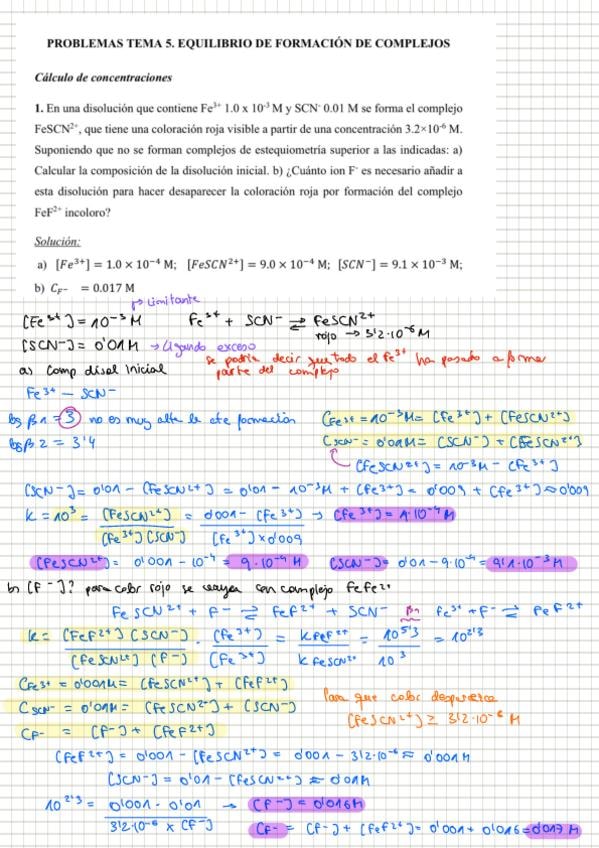 PROBLEMAS TEMA 5. EQUILIBRIO DE FORMACIÓN DE COMPLEJOS
Cálculo de concentraciones
1. En una disolución que contiene Fe³⁺ 1.0 x 10⁻³ M y SCN⁻ 0.01 M se forma el complejo
FeSCN²⁺, que tiene una coloración roja visible a partir de una concentración 3.2×10⁻⁶ M.
Suponiendo que no se forman complejos de estequiometría superior a las indicadas: a)
Calcular la composición de la disolución inicial. b) ¿Cuánto ion F⁻ es necesario añadir a
esta disolución para hacer desaparecer la coloración roja por formación del complejo
FeF²⁺ incoloro?
Solución:
a) [Fe³⁺] = 1.0 × 10⁻⁴ M; [FeSCN²⁺] = 9.0 × 10⁻⁴ M; [SCN⁻] = 9.1 × 10⁻³ M;
b) C_F⁻ = 0.017 M
→ Limitante
[Fe³⁺] = 10⁻³ M Fe³⁺ + SCN⁻ ⇌ FeSCN²⁺
rojo → 3'2·10⁻⁶ M
[SCN⁻] = 0'01 M → Ligando exceso
se podría decir que todo el Fe³⁺ ha pasado a formar
a) Comp disol Inicial parte del complejo
Fe³⁺ – SCN⁻
log β1 = 3 no es muy alta la cte formación C Fe³⁺ = 10⁻³ M = [Fe³⁺] + [FeSCN²⁺]
log β2 = 3'4 C SCN⁻ = 0'01M = [SCN⁻] + [FeSCN²⁺]
[FeSCN²⁺] = 10⁻³ M – [Fe³⁺]
[SCN⁻] = 0'01 – [FeSCN²⁺] = 0'01 – 10⁻³ M + [Fe³⁺] = 0'009 + [Fe³⁺] ≈ 0'009
K = 10³ = [FeSCN²⁺] / [Fe³⁺][SCN⁻] = 0'001 – [Fe³⁺] / [Fe³⁺] x 0'009 → [Fe³⁺] = 1·10⁻⁴ M
[FeSCN²⁺] = 0'001 – 10⁻⁴ = 9·10⁻⁴ M [SCN⁻] = 0'01 – 9·10⁻⁴ = 9'1·10⁻³ M
b) [F⁻]? para color rojo se vaya con complejo FeFe²⁺
FeSCN²⁺ + F⁻ ⇌ FeF²⁺ + SCN⁻ Fe³⁺ + F⁻ ⇌ FeF²⁺
K = [FeF²⁺][SCN⁻] / [FeSCN²⁺][F⁻] · [Fe³⁺] / [Fe³⁺] = K FeF²⁺ / K FeSCN²⁺ = 10⁵'³ / 10³ = 10²'³
C Fe³⁺ = 0'001M = [FeSCN²⁺] + [FeF²⁺]
Para que color desaparezca
C SCN⁻ = 0'01M = [FeSCN²⁺] + [SCN⁻]
[FeSCN²⁺] ≥ 3'2·10⁻⁶ M
C F⁻ = [F⁻] + [FeF²⁺]
[FeF²⁺] = 0'001 – [FeSCN²⁺] = 0'001 – 3'2·10⁻⁶ ≈ 0'001 M
[SCN⁻] = 0'01 – [FeSCN²⁺] ≈ 0'01 M
10²'³ = 0'001 · 0'01 / 3'2·10⁻⁶ x [F⁻] → [F⁻] = 0'016 M
C F⁻ = [F⁻] + [FeF²⁺] = 0'001 + 0'016 = 0'017 M